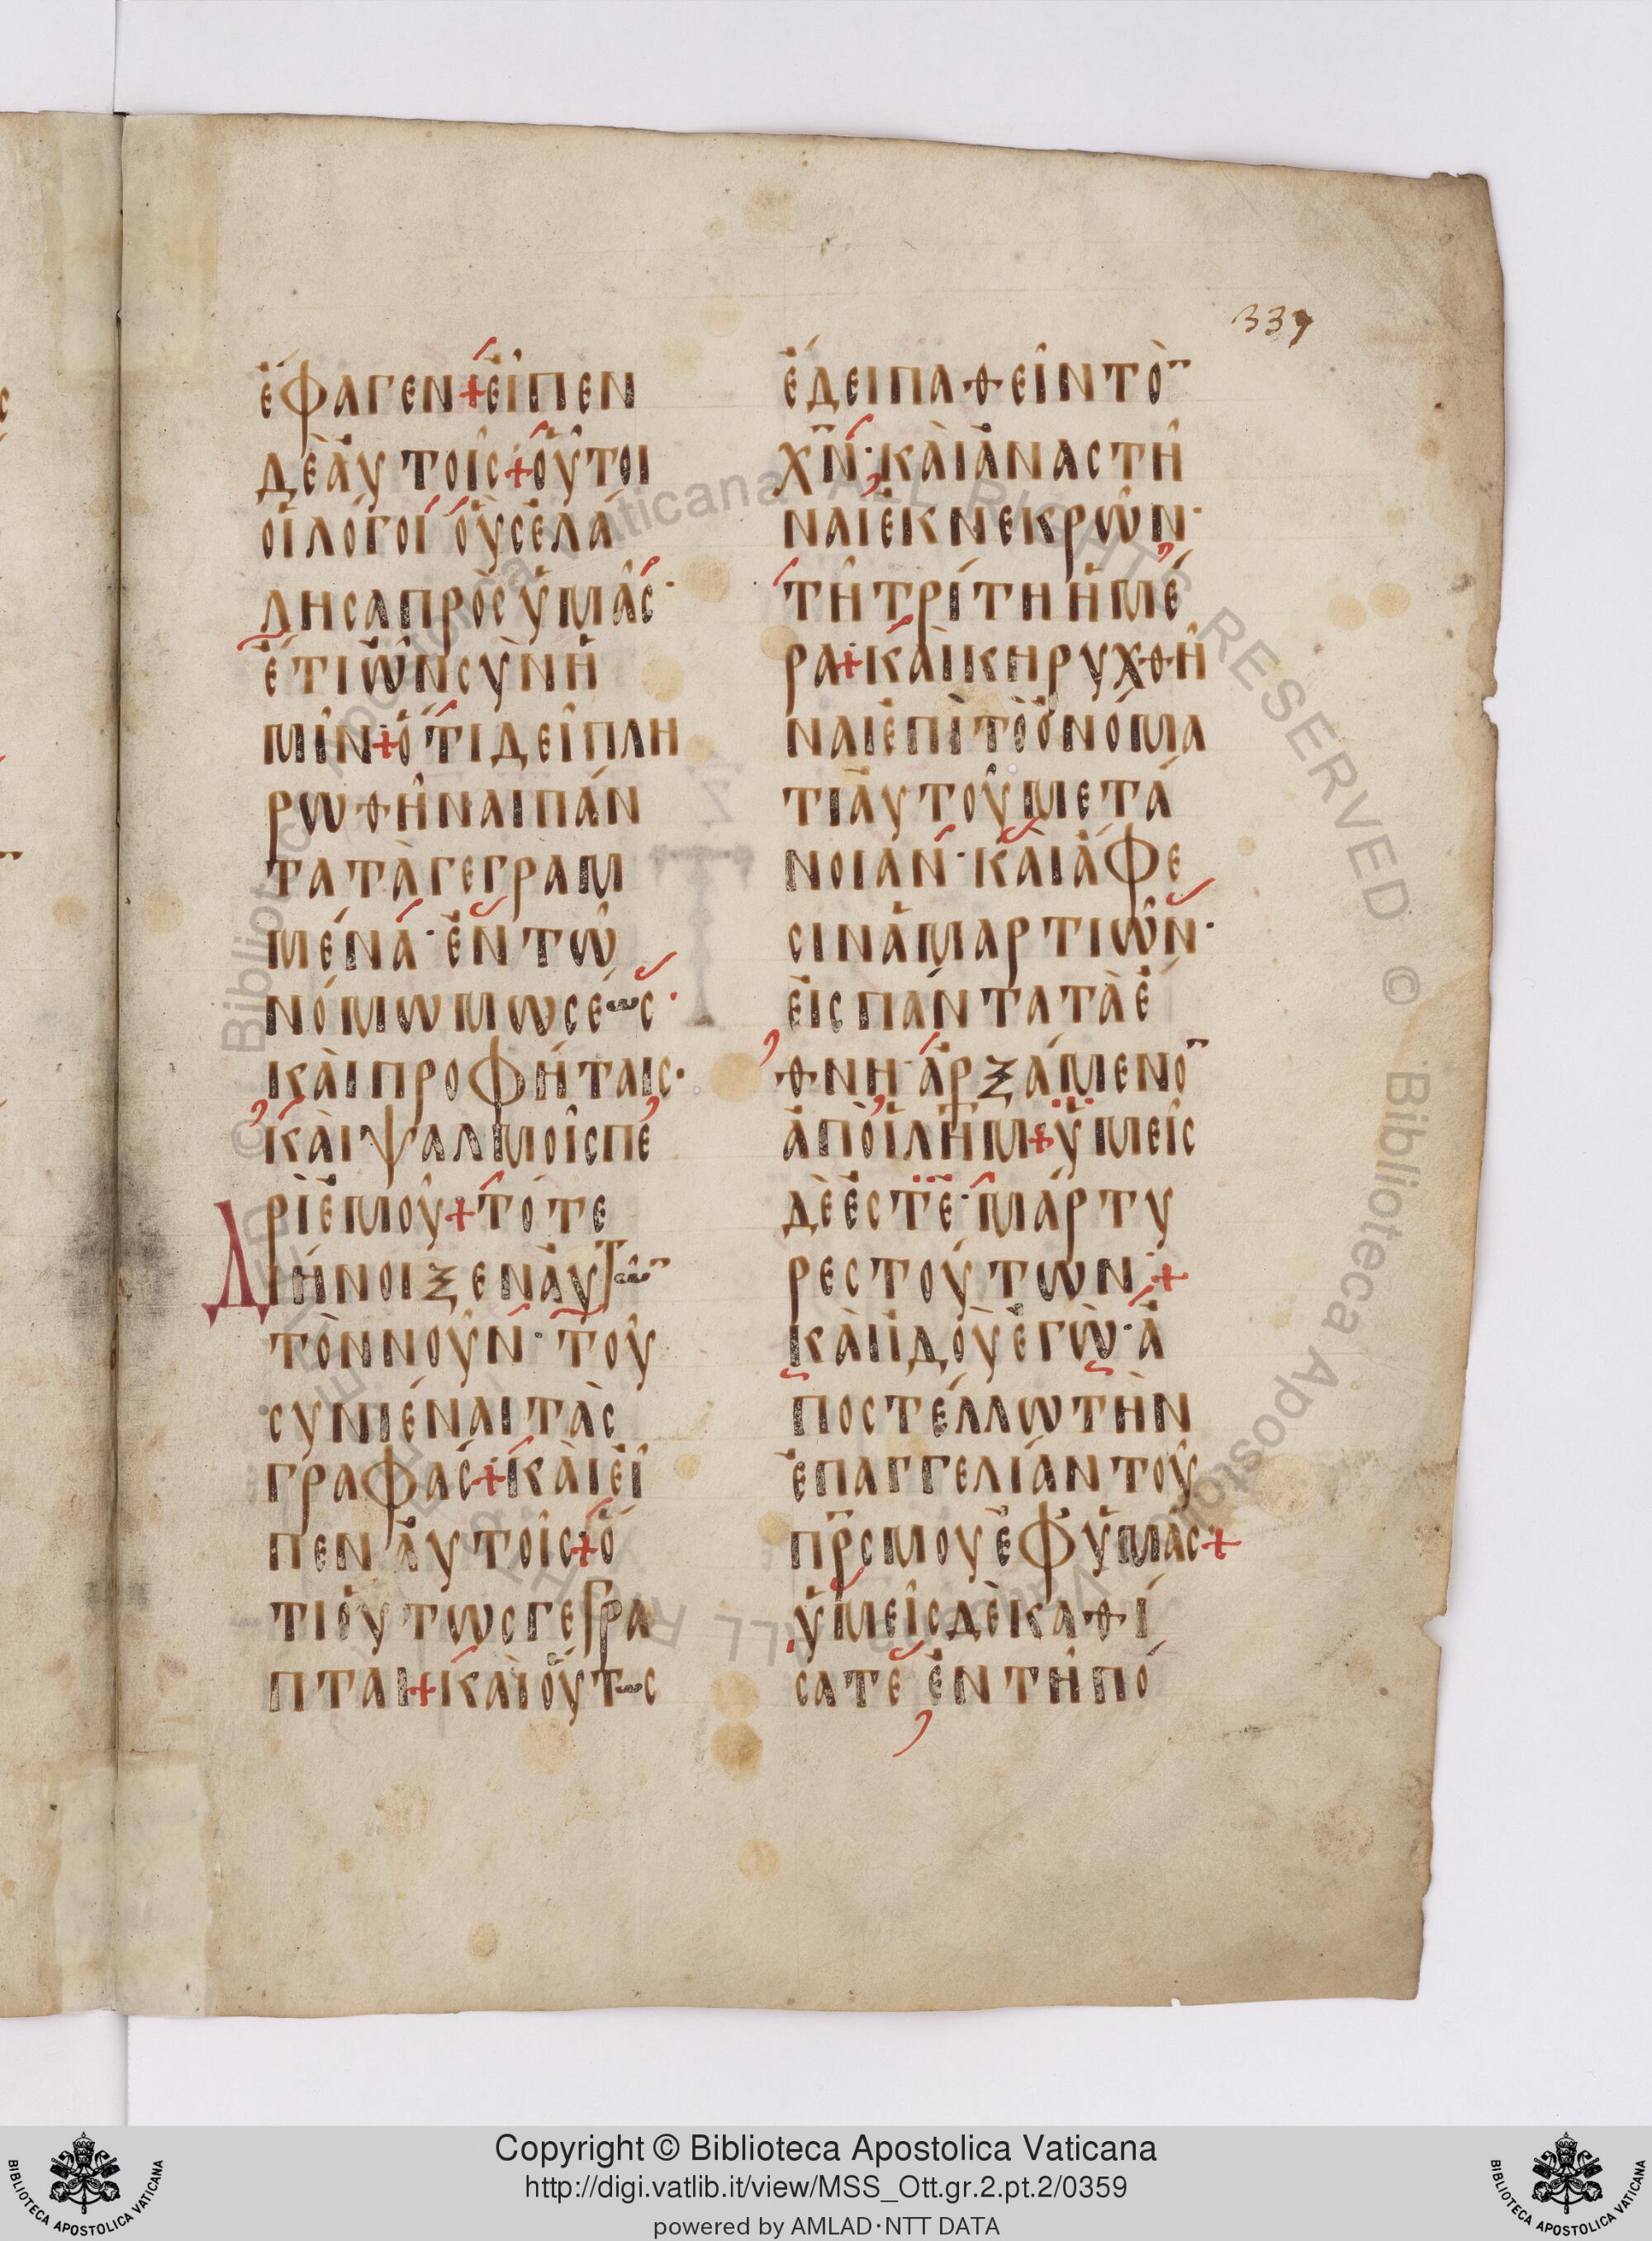 337
ἔφαγεν + εἶπεν
δὲ αὐτοῖς + οὗτοι
οἱ λόγοι οὓς ἐλά
λησα πρὸς ὑμᾶς·
ἔτι ὢν σὺν ἡ
μῖν + ὅτι δεῖ πλη
ρωθῆναι πάν
τα τὰ γεγραμ
μένα· ἐν τῶ
νόμω μωσέως·
καὶ προφήταις·
καὶ ψαλμοῖς πε
ρὶ ἐμοῦ + τότε
Διήνοιξεν αὐτῶ̅
τὸν νοῦν· τοῦ
συνιέναι τὰς
γραφάς + καὶ εἶ
πεν αὐτοῖς + ὅ
τι οὕτως γεγρα
πται + καὶ οὕτως
ἔδει παθεῖν τὸ̅
χ̅ν̅· καὶ ἀναστῆ
ναι ἐκ νεκρῶν·
τῆ τρίτη ἡμέ
ρα + καὶ κηρυχθῆ
ναι ἐπὶ τὸ ὀνόμα
τι αὐτοῦ μετά
νοιαν· καὶ ἄφε
σιν ἁμαρτιῶν·
εἰς πάντα τὰ ἔ
θνη· ἀρξάμενο̅
ἀπὸ ἰλῆμ + ὑμεῖς
δὲ ἐστε· μάρτυ
ρες τούτων +
καὶ ἰδοὺ ἐγὼ· ἀ
ποστέλλω τὴν
ἐπαγγελίαν τοῦ
π̅ρ̅ς μου ἐφ ὑμᾶς +
ὑμεῖς δὲ καθί
σατε ἐν τῆ πό
© Biblioteca Apostolica Vaticana ALL RIGHTS RESERVED © Biblioteca Apostolica Vaticana ALL RIGHTS RESERVED
Copyright © Biblioteca Apostolica Vaticana
http://digi.vatlib.it/view/MSS_Ott.gr.2.pt.2/0359
powered by AMLAD·NTT DATA
BIBLIOTECA APOSTOLICA VATICANA
BIBLIOTECA APOSTOLICA VATICANA